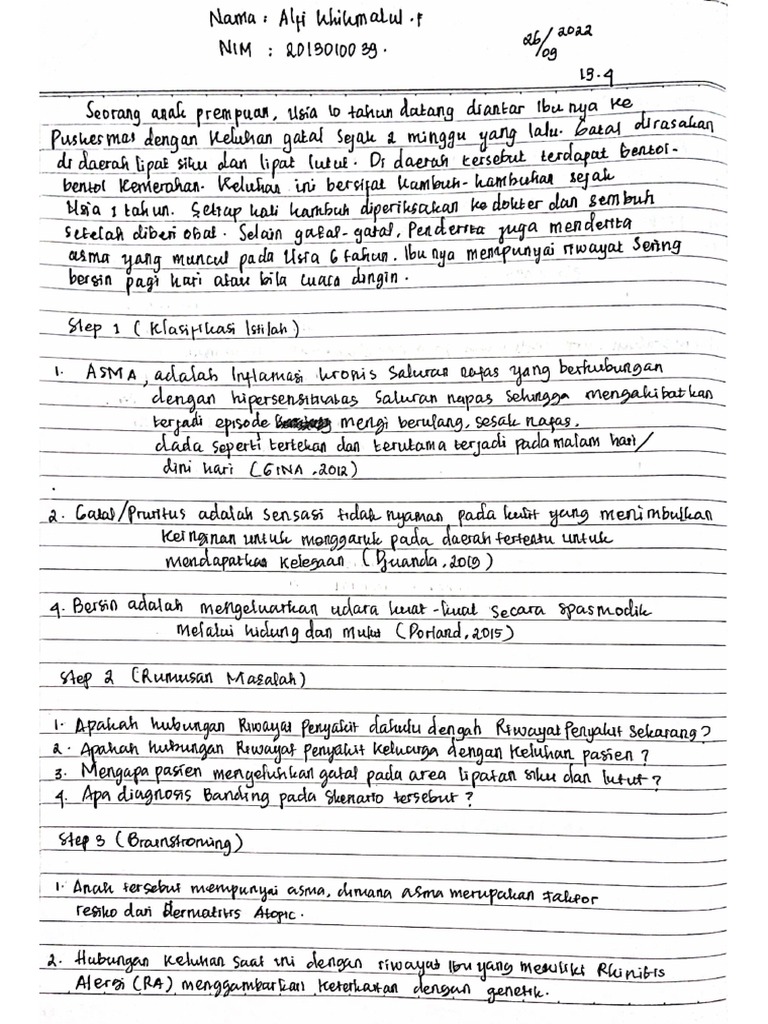 Nama : Alfi Khikmatul .F
NIM : 2013010039.
26/09 2022
19.4
Seorang anak prempuan, Usia 10 tahun datang diantar Ibu nya ke
Puskesmas dengan keluhan gatal sejak 2 minggu yang lalu. Gatal dirasakan
di daerah lipat siku dan lipat lutut. Di daerah tersebut terdapat bentol-
bentol kemerahan. Keluhan ini bersifat kambuh-kambuhan sejak
Usia 1 tahun. Setiap kali kambuh diperiksakan ke dokter dan sembuh
setelah diberi obat. Selain gatal-gatal, Penderita juga menderita
asma yang muncul pada Usia 6 tahun. Ibu nya mempunyai riwayat sering
bersin pagi hari atau bila cuaca dingin.
Step 1 ( Klasifikasi Istilah)
1. ASMA, adalah Inflamasi kronis Saluran nafas yang berhubungan
dengan hipersensitivitas Saluran napas sehingga mengakibatkan
terjadi episode mengi berulang, sesak nafas,
dada seperti tertekan dan terutama terjadi pada malam hari/
dini hari (GINA, 2012)
2. Gatal/Pruritus adalah sensasi tidak nyaman pada kulit yang menimbulkan
keinginan untuk menggaruk pada daerah tertentu untuk
mendapatkan kelegaan (Djuanda, 2019)
4. Bersin adalah mengeluarkan udara kuat-kuat secara spasmodik
melalui hidung dan mulut (Dorland, 2015)
Step 2 (Rumusan Masalah)
1. Apakah hubungan Riwayat Penyakit dahulu dengah Riwayat Penyakit sekarang?
2. Apakah hubungan Riwayat Penyakit keluarga dengan keluhan pasien?
3. Mengapa pasien mengeluhkan gatal pada area lipatan siku dan lutut?
4. Apa diagnosis Banding pada skenario tersebut?
Step 3 (Brainstroming)
1. Anak tersebut mempunyai asma, dimana asma merupakan Faktor
resiko dari Dermatitis Atopic.
2. Hubungan keluhan saat ini dengan riwayat Ibu yang memiliki Rhinitis
Alergi (RA) menggambarkan keterkaitan dengan genetik.